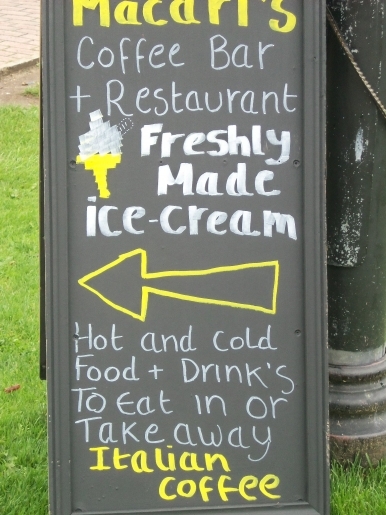 Macari's
Coffee Bar
+ Restaurant
Freshly
Made
ice-cream
Hot and cold
Food + Drink's
To Eat in or
Take away
Italian
coffee